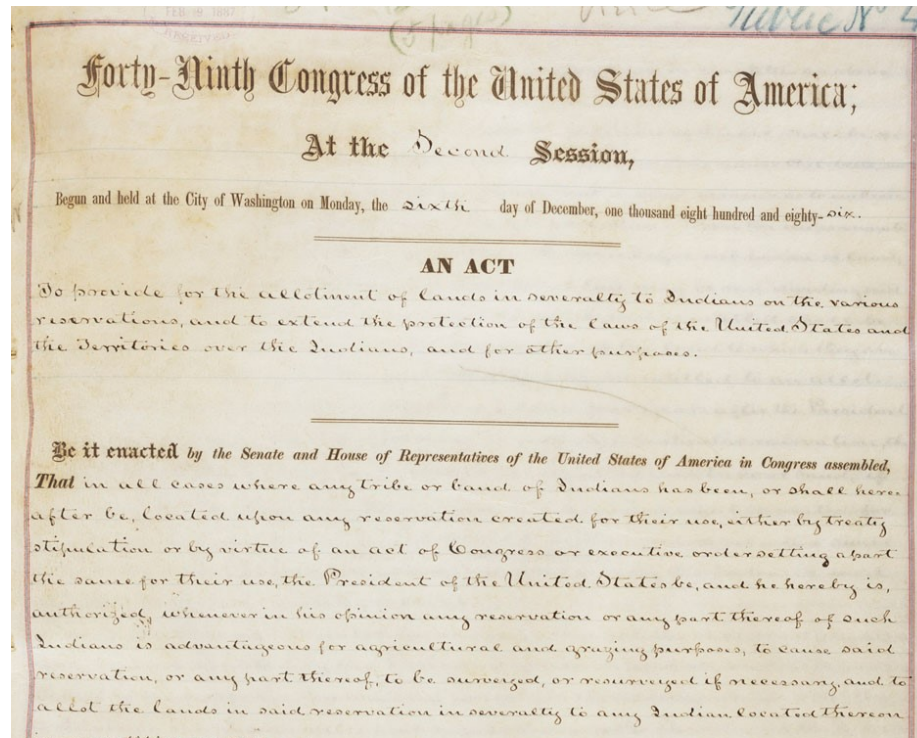 FEB 18 1887
RECEIVED
(5 pages)
Public No 4
Forty-Ninth Congress of the United States of America;
At the Second Session,
Begun and held at the City of Washington on Monday, the sixth day of December, one thousand eight hundred and eighty-six.
AN ACT
To provide for the allotment of lands in severalty to Indians on the various
reservations, and to extend the protection of the laws of the United States and
the Territories over the Indians, and for other purposes.
Be it enacted by the Senate and House of Representatives of the United States of America in Congress assembled,
That in all cases where any tribe or band of Indians has been, or shall here-
after be, located upon any reservation created for their use, either by treaty
stipulation or by virtue of an act of Congress or executive order setting apart
the same for their use, the President of the United States be, and he hereby is,
authorized, whenever in his opinion any reservation or any part thereof of such
Indians is advantageous for agricultural and grazing purposes, to cause said
reservation, or any part thereof, to be surveyed, or resurveyed if necessary, and to
allot the lands in said reservation in severalty to any Indian located thereon